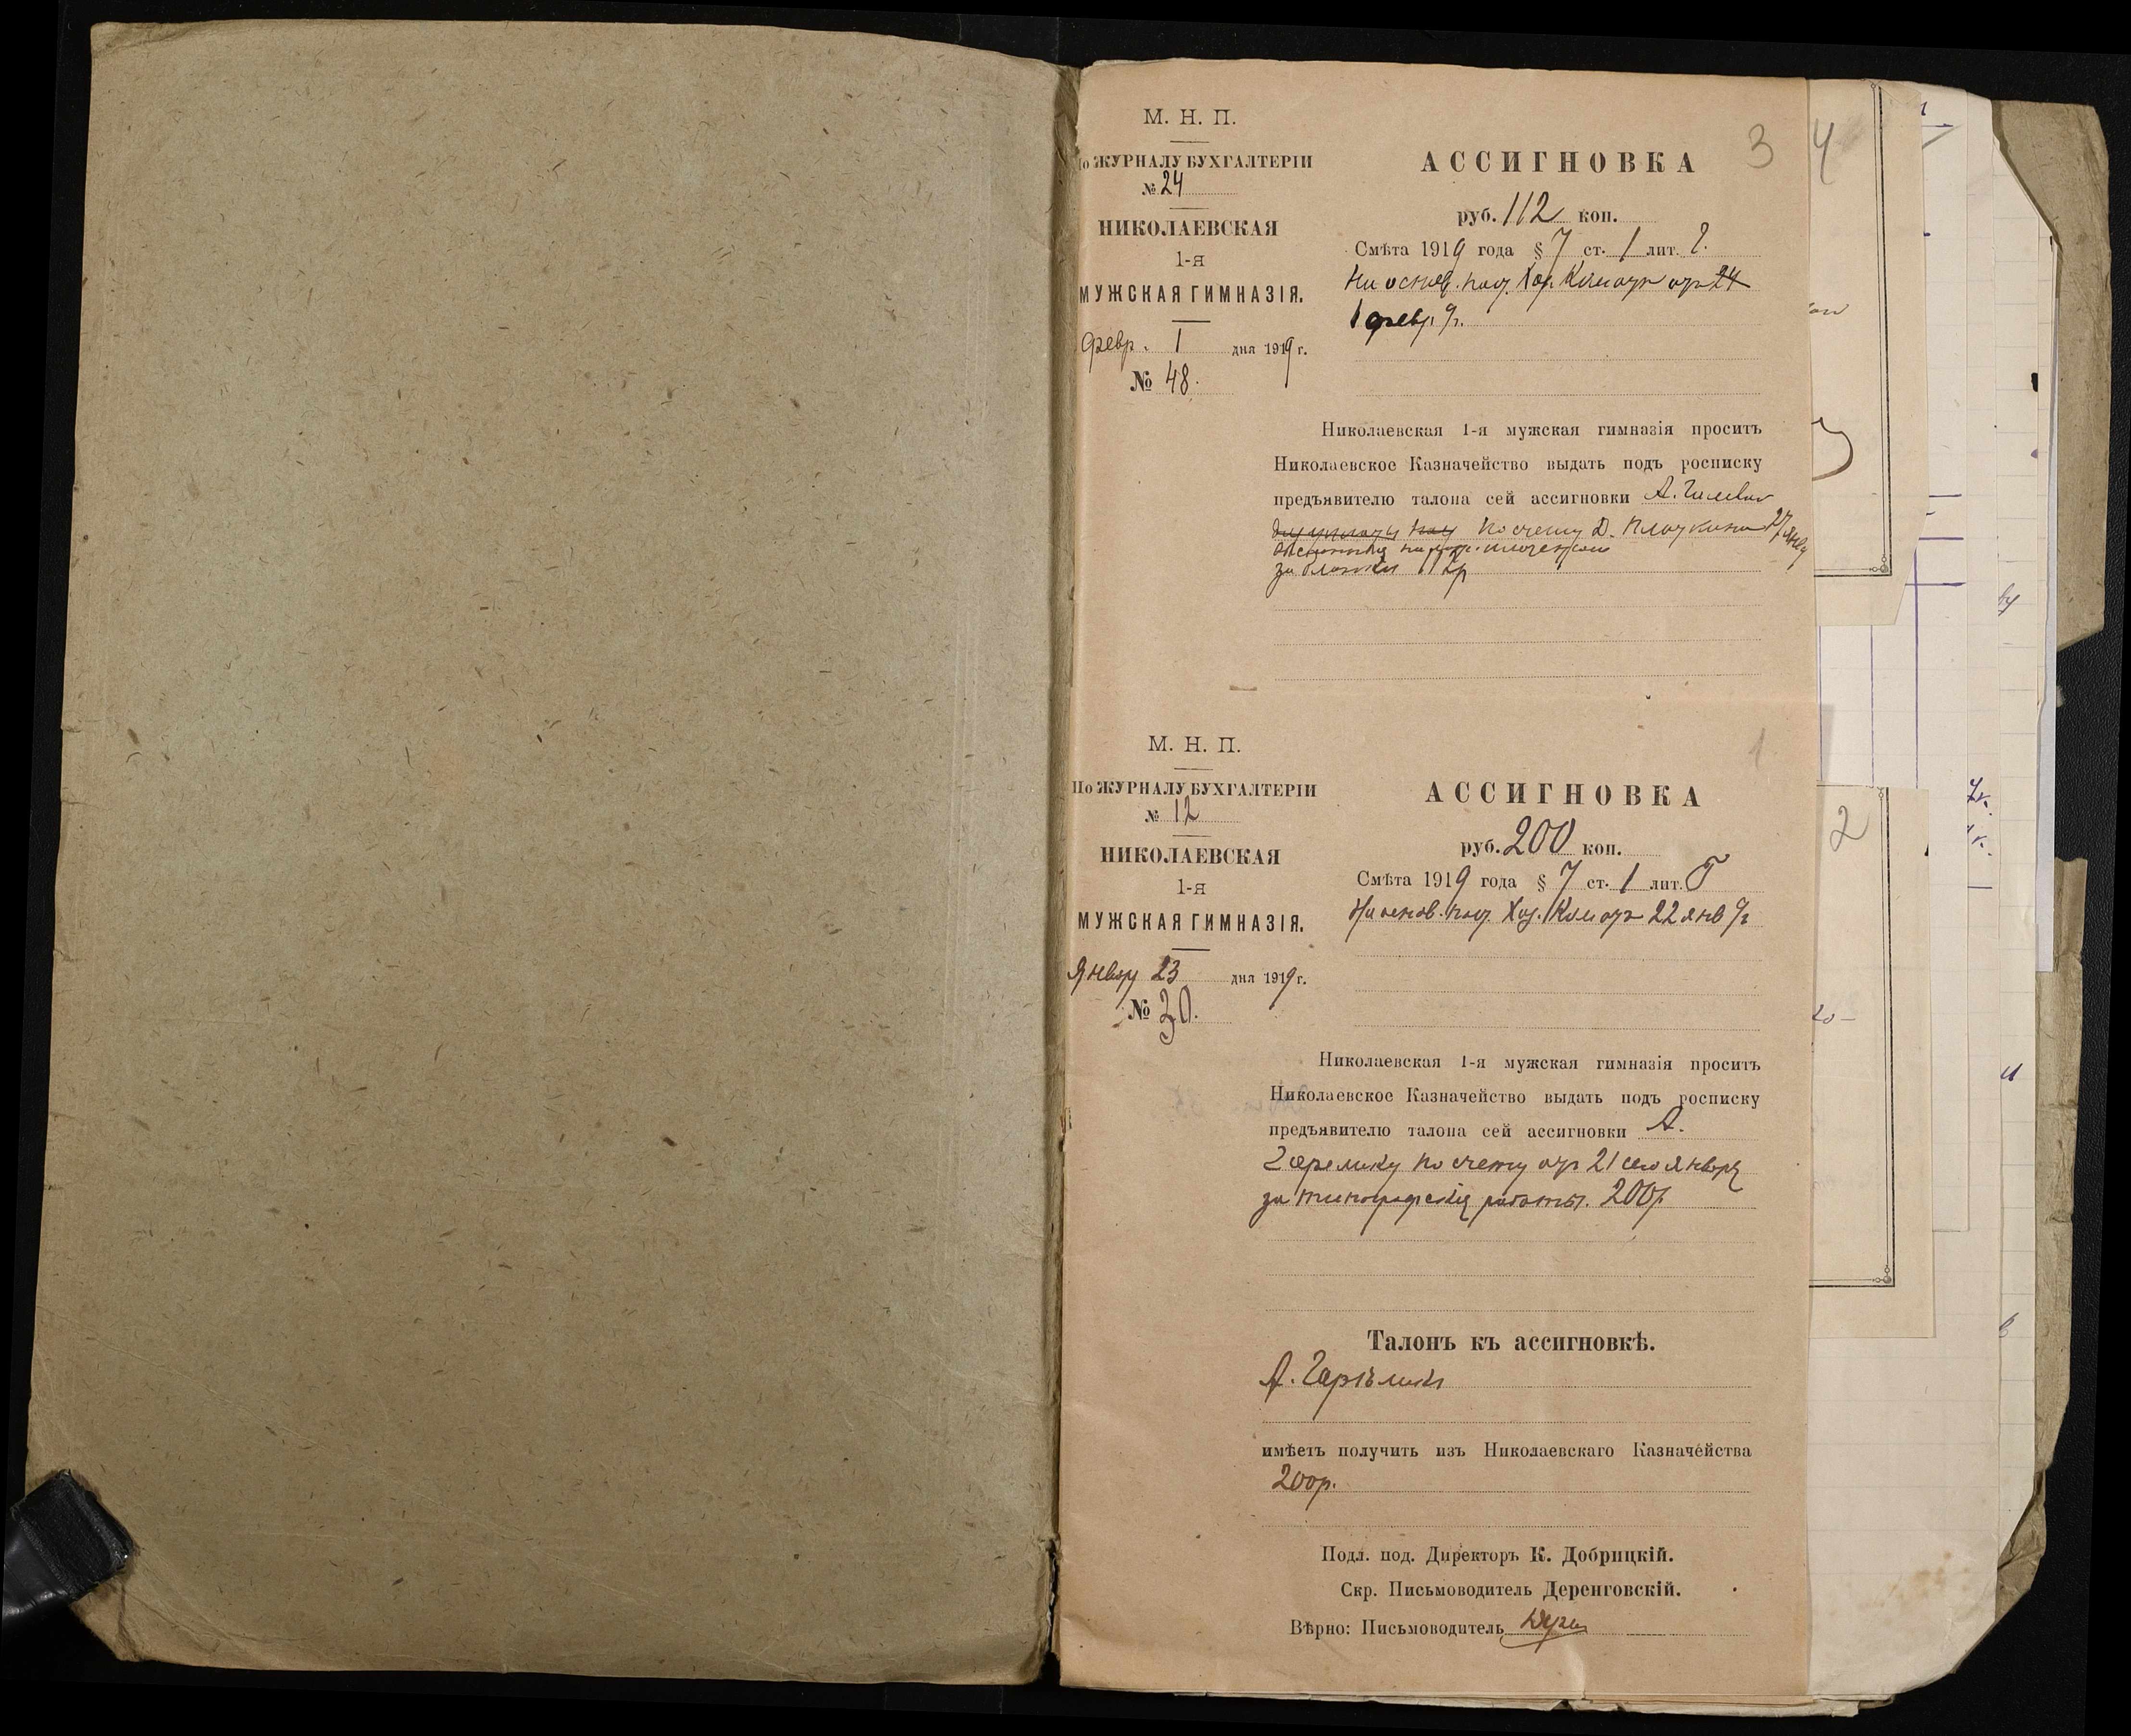 М. Н. П.
По ЖУРНАЛУ БУХГАЛТЕРІИ
№ 24
НИКОЛАЕВСКАЯ
1-я
МУЖСКАЯ ГИМНАЗІЯ.
февр. 1 дня 1919 г.
№ 48.
АССИГНОВКА
3
руб. 112 коп.
Смѣта 1919 года § 7 ст. 1 лит. Г.
На основ. пост. Хоз. Ком отъ 24
1 февр.
Николаевская 1-я мужская гимназія проситъ
Николаевское Казначейство выдать подъ росписку
предъявителю талона сей ассигновки А.
по счету Д. 27 янв
за бланки 112р
М. Н. П.
По ЖУРНАЛУ БУХГАЛТЕРІИ
№ 12
НИКОЛАЕВСКАЯ
1-я
МУЖСКАЯ ГИМНАЗІЯ.
Январ 23 дня 1919 г.
№ 30.
1
АССИГНОВКА
руб. 200 коп.
Смѣта 1919 года § 7 ст. 1 лит. Г
На основ. пост. Хоз. Ком отъ 22 янв
Николаевская 1-я мужская гимназія проситъ
Николаевское Казначейство выдать подъ росписку
предъявителю талона сей ассигновки А.
по счету отъ 21 сего января
за типографскія работы. 200р
Талонъ къ ассигновкѣ.
А.
имѣетъ получить изъ Николаевскаго Казначейства
200р.
Подл. под. Директоръ К. Добрицкій.
Скр. Письмоводитель Деренговскій.
Вѣрно: Письмоводитель
4
2